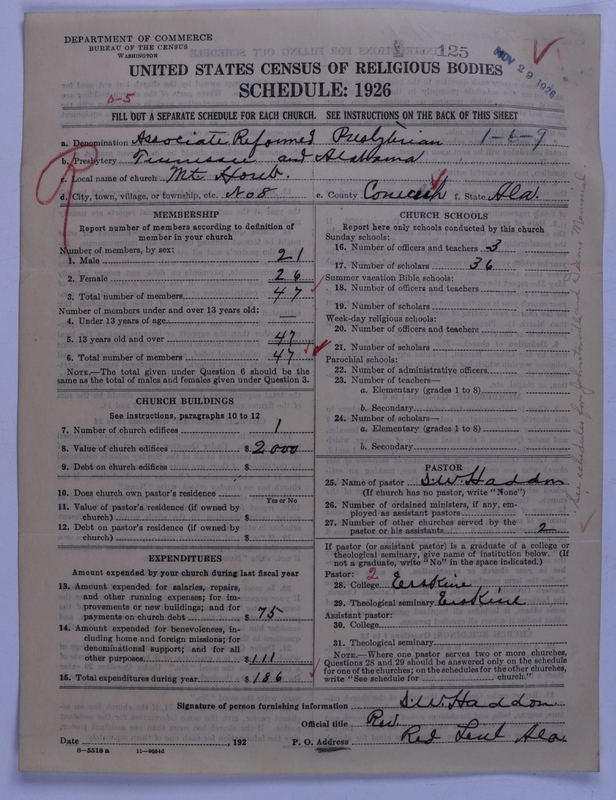 DEPARTMENT OF COMMERCE
BUREAU OF THE CENSUS
WASHINGTON
125
NOV 29 1926
UNITED STATES CENSUS OF RELIGIOUS BODIES
SCHEDULE: 1926
D-5
FILL OUT A SEPARATE SCHEDULE FOR EACH CHURCH. SEE INSTRUCTIONS ON THE BACK OF THIS SHEET
a. Denomination Associate Reformed Presbyterian 1-6-9
b. Presbytery Tennessee and Alabama
c. Local name of church Mt. Horeb.
d. City, town, village, or township, etc. No 8 e. County Conecuh f. State Ala.
MEMBERSHIP
Report number of members according to definition of
member in your church
Number of members, by sex:
1. Male 21
2. Female 26
3. Total number of members 47
Number of members under and over 13 years old:
4. Under 13 years of age —
5. 13 years old and over 47
6. Total number of members 47
NOTE.—The total given under Question 6 should be the
same as the total of males and females given under Question 3.
CHURCH BUILDINGS
See instructions, paragraphs 10 to 12
7. Number of church edifices 1
8. Value of church edifices $ 2000
9. Debt on church edifices $
10. Does church own pastor's residence
Yes or No
11. Value of pastor's residence (if owned by
church) $
12. Debt on pastor's residence (if owned by
church) $
EXPENDITURES
Amount expended by your church during last fiscal year
13. Amount expended for salaries, repairs,
and other running expenses; for im-
provements or new buildings; and for
payments on church debt $ 75
14. Amount expended for benevolences, in-
cluding home and foreign missions; for
denominational support; and for all
other purposes $ 111
15. Total expenditures during year $ 186
CHURCH SCHOOLS
Report here only schools conducted by this church
Sunday schools:
16. Number of officers and teachers 3
17. Number of scholars 36
Summer vacation Bible schools:
18. Number of officers and teachers
19. Number of scholars
Week-day religious schools:
20. Number of officers and teachers
21. Number of scholars
Parochial schools:
22. Number of administrative officers
23. Number of teachers—
a. Elementary (grades 1 to 8)
b. Secondary
24. Number of scholars—
a. Elementary (grades 1 to 8)
b. Secondary
PASTOR
25. Name of pastor S.W. Haddon
(If church has no pastor, write "None")
26. Number of ordained ministers, if any, em-
ployed as assistant pastors
27. Number of other churches served by the
pastor or his assistants 2
If pastor (or assistant pastor) is a graduate of a college or
theological seminary, give name of institution below. (If
not a graduate, write "No" in the space indicated.)
Pastor: 2
28. College Erskine
29. Theological seminary Erskine
Assistant pastor:
30. College
31. Theological seminary
NOTE.—Where one pastor serves two or more churches,
Questions 28 and 29 should be answered only on the schedule
for one of the churches; on the schedules for the other churches,
write "See schedule for church."
See schedules for Johnstonville and Memorial
Signature of person furnishing information S.W. Haddon
Official title Rev.
Date , 192 P. O. Address Red Level Ala.
8-5518 a